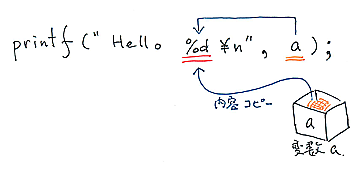 printf("Hello %d ¥n", a);
内容コピー
a
変数a.